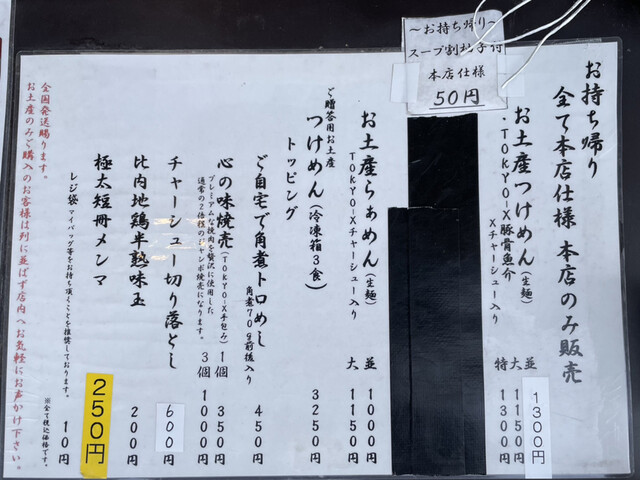 ～お持ち帰り～
スープ割ネギ付
本店仕様
50円
お持ち帰り
全て本店仕様 本店のみ販売
お土産つけめん(生麺)
・TOKYO-X豚骨魚介
Xチャーシュー入り
並 1300円
大 1150円
特 1300円
お土産らぁめん(生麺)
TOKYO-Xチャーシュー入り
並 1000円
大 1150円
ご贈答用お土産
つけめん(冷凍箱3食) 3250円
トッピング
ご自宅で角煮トロめし 450円
角煮70g前後入り
心の味焼売(TOKYO-X手包み) 1個 350円
プレミアムな挽肉を贅沢に使用した
通常の2倍程のジャンボ焼売になります。
3個 1000円
チャーシュー切り落とし 600円
比内地鶏半熟味玉 200円
極太短冊メンマ 250円
レジ袋 マイバッグ等をお持ち頂くことを推奨しております。 10円
※全て税込価格です。
全国発送賜ります。
お土産のみご購入のお客様は列に並ばず店内へお気軽にお声かけ下さい。